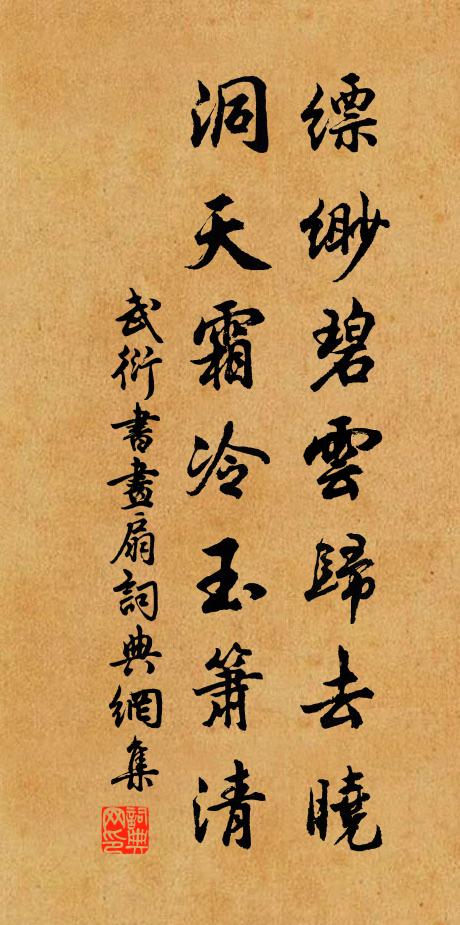 縹緲碧雲歸去曉
洞天霜冷玉簫清
武衍書畫扇詞典網集
詞典网印